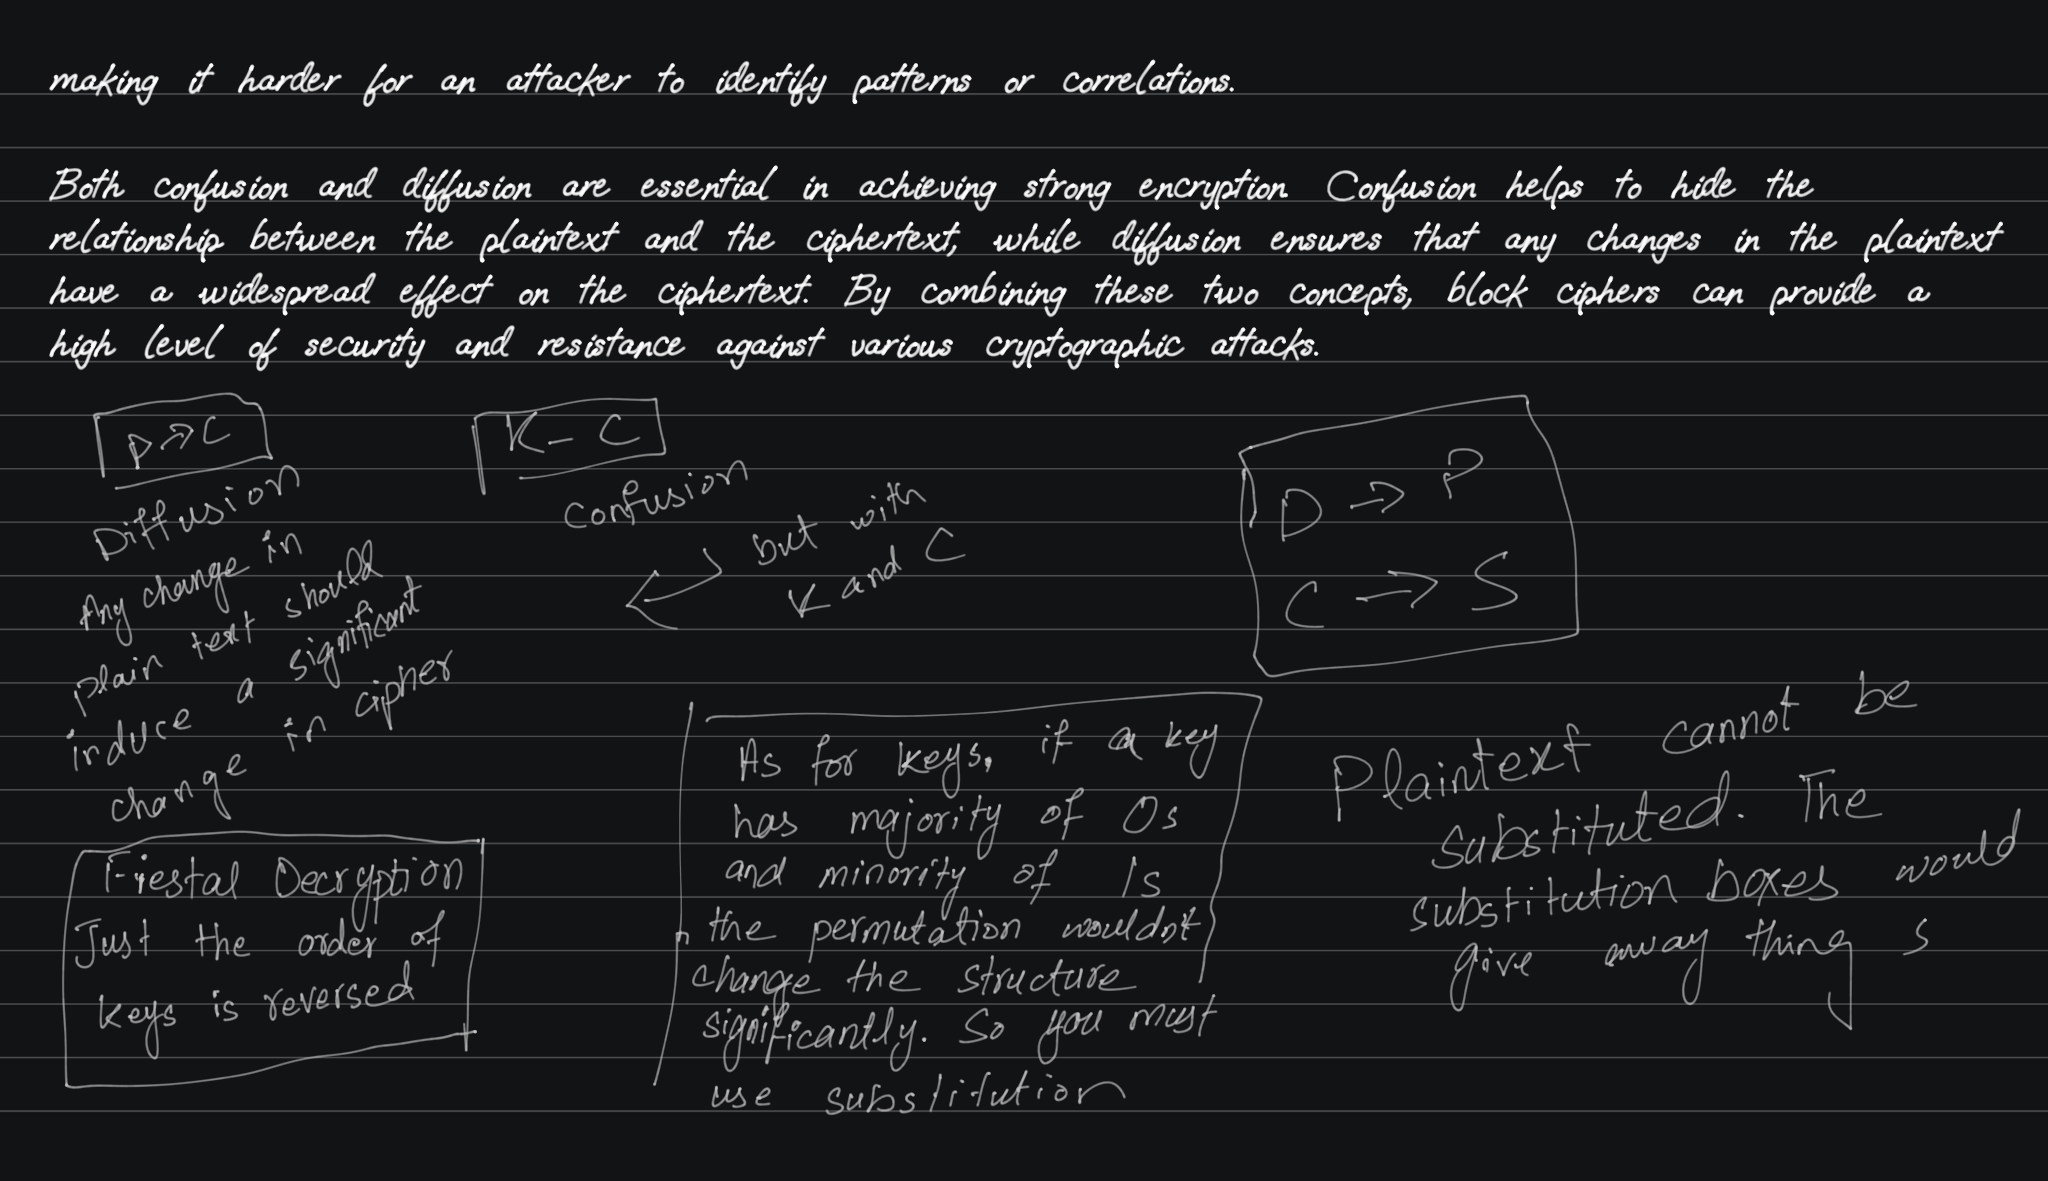 making it harder for an attacker to identify patterns or correlations.
Both confusion and diffusion are essential in achieving strong encryption Confusion helps to hide the
relationship between the plaintext and the ciphertext, while diffusion ensures that any changes in the plaintext
have a widespread effect on the ciphertext. By combining these two concepts, block ciphers can provide a
high level of security and resistance against various cryptographic attacks.
P → C
Diffusion
Any change in
plain text should
induce a significant
change in cipher
K - C
Confusion
but with
K and C
D → P
C → S
Fiestal Decryption
Just the order of
keys is reversed
As for keys, if a key
has majority of 0s
and minority of 1s
the permutation wouldn't
change the structure
significantly. So you must
use substitution
Plaintext cannot be
substituted. The
substitution boxes would
give away things